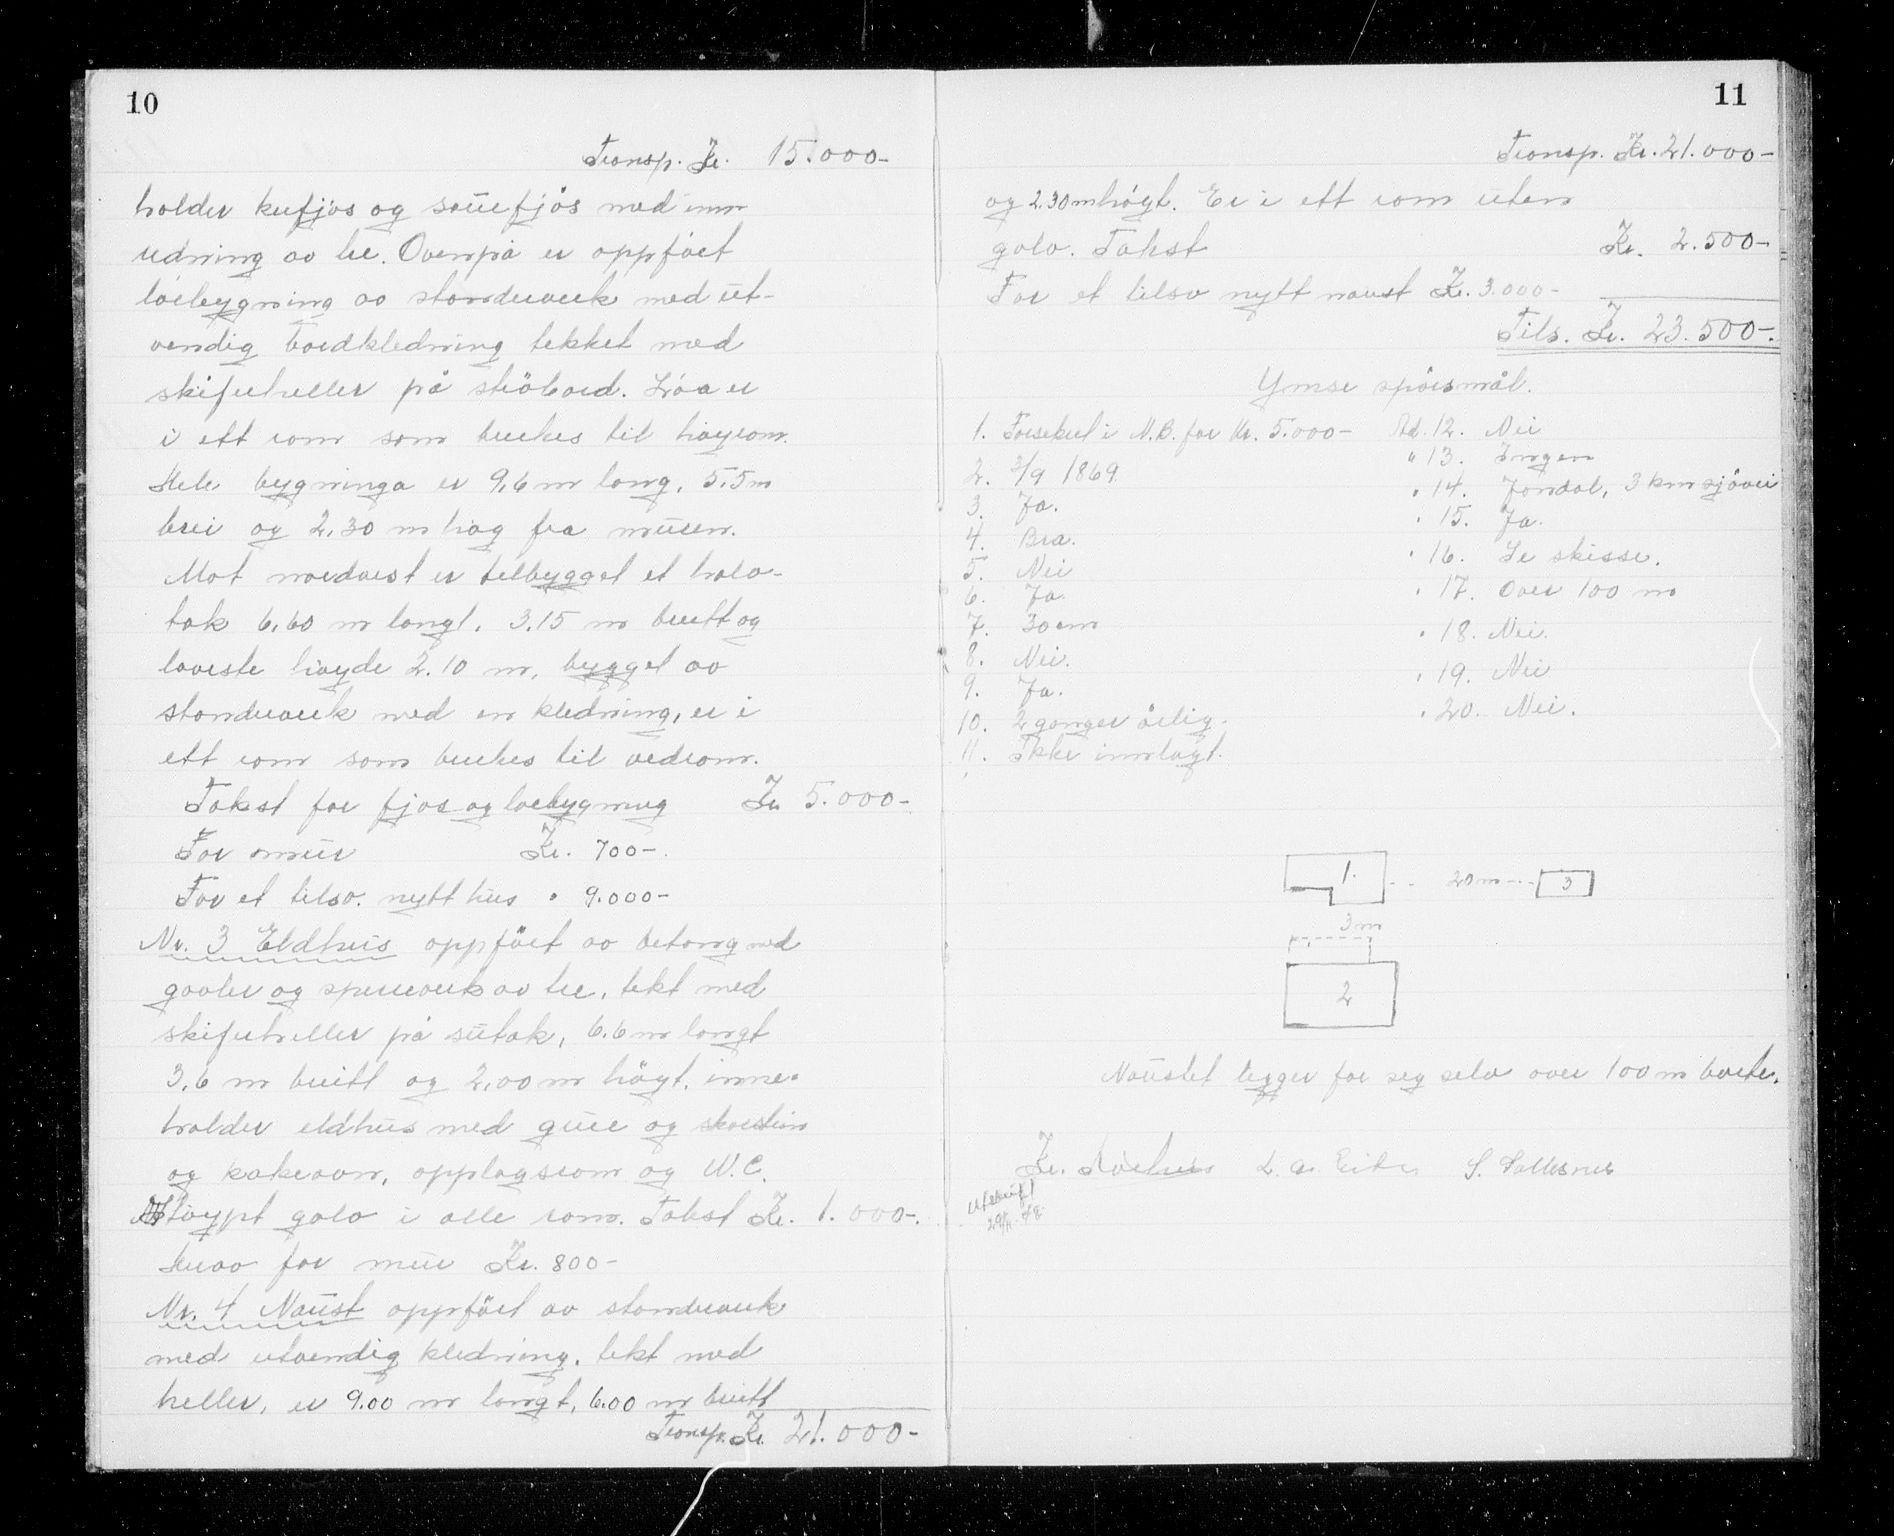 10
Transp. Kr. 15.000-
holder kufjøs og sauefjøs med inn
redning av tre. Ovenpå er oppført
løebygning av standverk med ut-
vendig bordkledning tekket med
skiferheller på ströbord. Löa er
i ett rom som brukes til høyrom.
Hele bygninga er 9,6 m lang, 5.5 m
brei og 2,30 m høg fra muren.
Mot nordvest er tilbygget et halv-
tak 6,60 m langt, 3.15 m breitt og
laveste høyde 2.10 m, bygget av
standverk med en kledning, er i
ett rom som brukes til vedrom.
Takst for fjøs og løebygning Kr 5.000-
For mur Kr. 700-
For et tilsv. nytt hus " 9.000-
Nr. 3 Eldhus oppfört av betong med
gavler og sperreverk av tre, tekt med
skiferheller på sutak, 6.6 m langt
3,6 m breitt og 2,00 m högt, inne-
holder eldhus med grue og skorstein
og kakeovn, opplagsrom og W.C.
Støypt golv i alle rom. Takst Kr. 1.000-.
Herav for mur Kr. 800-
Nr. 4 Naust oppfört av standverk
med utvendig kledning, tekt med
heller, er 9.00 m langt, 6.00 m breitt
Transp. Kr. 21.000-
11
Transp. Kr. 21.000-
og 2.30 m högt. Er i ett rom uten
golv. Takst Kr. 2.500-
For et tilsv nytt naust Kr. 3.000-
Tils. Kr. 23.500-.
Ymse spörsmål.
1. Forsekret i N.B. for Kr. 5.000-
2. 3/9 1869.
3. Ja.
4. Bra.
5. Nei
6. Ja.
7. 30 cm
8. Nei.
9. Ja.
10. 2 ganger årlig.
11. Ikke innlagt.
Ad. 12. Nei
" 13. Ingen
" 14. Jondal, 3 km sjövei
" 15. Ja.
" 16. Se skisse.
" 17. Over 100 m
" 18. Nei.
" 19. Nei
" 20. Nei.
1. 20 m 3
3 m
2
Naustet ligger for seg selv over 100 m borte.
Kr. S. Solesnes
Utskrift